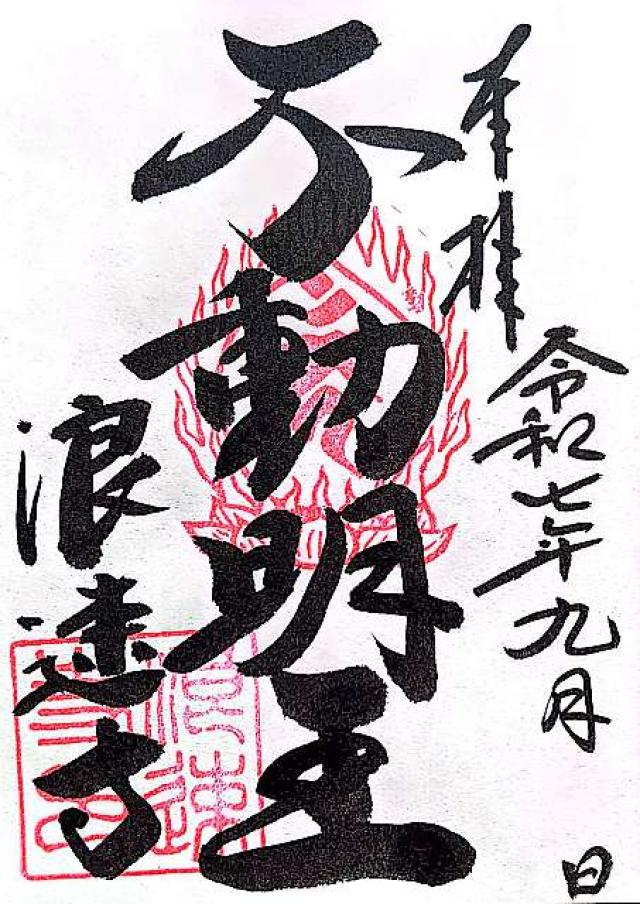 奉拝
令和七年九月　日
不動明王
浪速寺